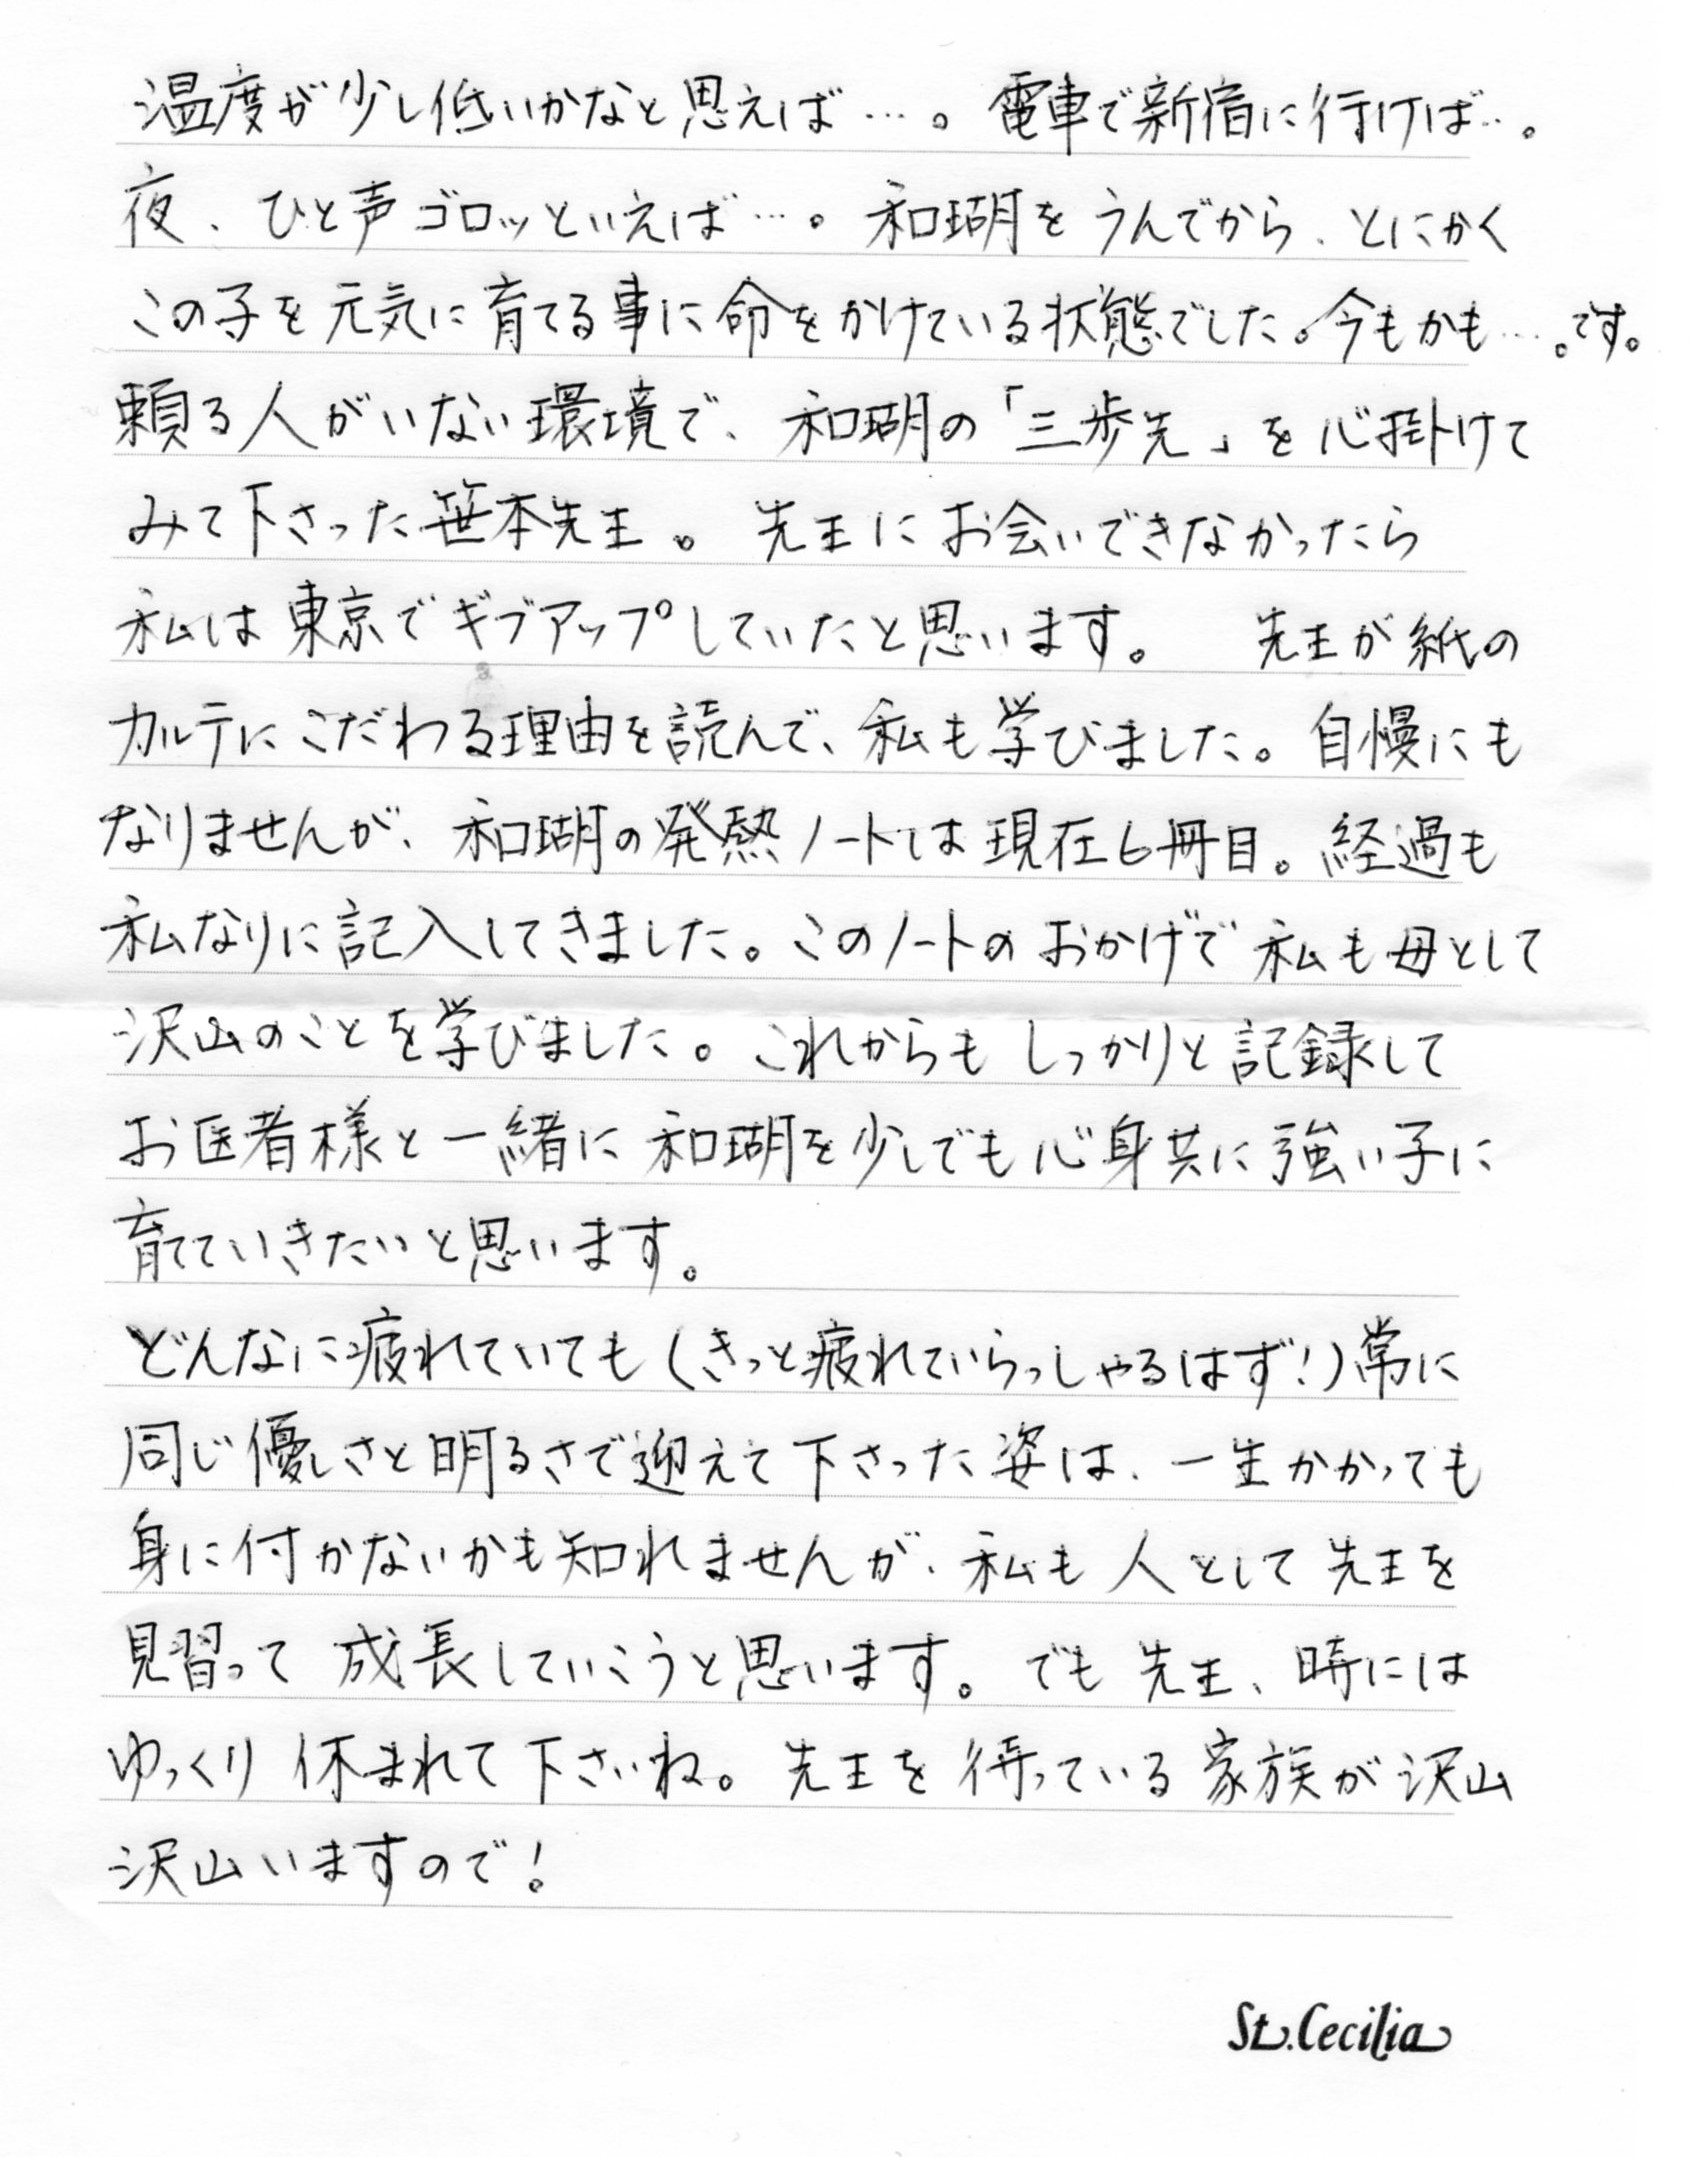 温度が少し低いかなと思えば…。電車で新宿に行けば…。
夜、ひと声ゴロッといえば…。和瑚をうんでから、とにかく
この子を元気に育てる事に命をかけている状態でした。今もかも…。です。
頼る人がいない環境で、和瑚の「三歩先」を心掛けて
みて下さった笹本先生。先生にお会いできなかったら
私は東京でギブアップしていたと思います。　先生が紙の
カルテにこだわる理由を読んで、私も学びました。自慢にも
なりませんが、和瑚の発熱ノートは現在6冊目。経過も
私なりに記入してきました。このノートのおかげで私も母として
沢山のことを学びました。これからもしっかりと記録して
お医者様と一緒に和瑚を少しでも心身共に強い子に
育てていきたいと思います。
どんなに疲れていても（きっと疲れていらっしゃるはず！）常に
同じ優しさと明るさで迎えて下さった姿は、一生かかっても
身に付かないかも知れませんが、私も人として先生を
見習って成長していこうと思います。でも先生、時には
ゆっくり休まれて下さいね。先生を待っている家族が沢山
沢山いますので！
St.Cecilia